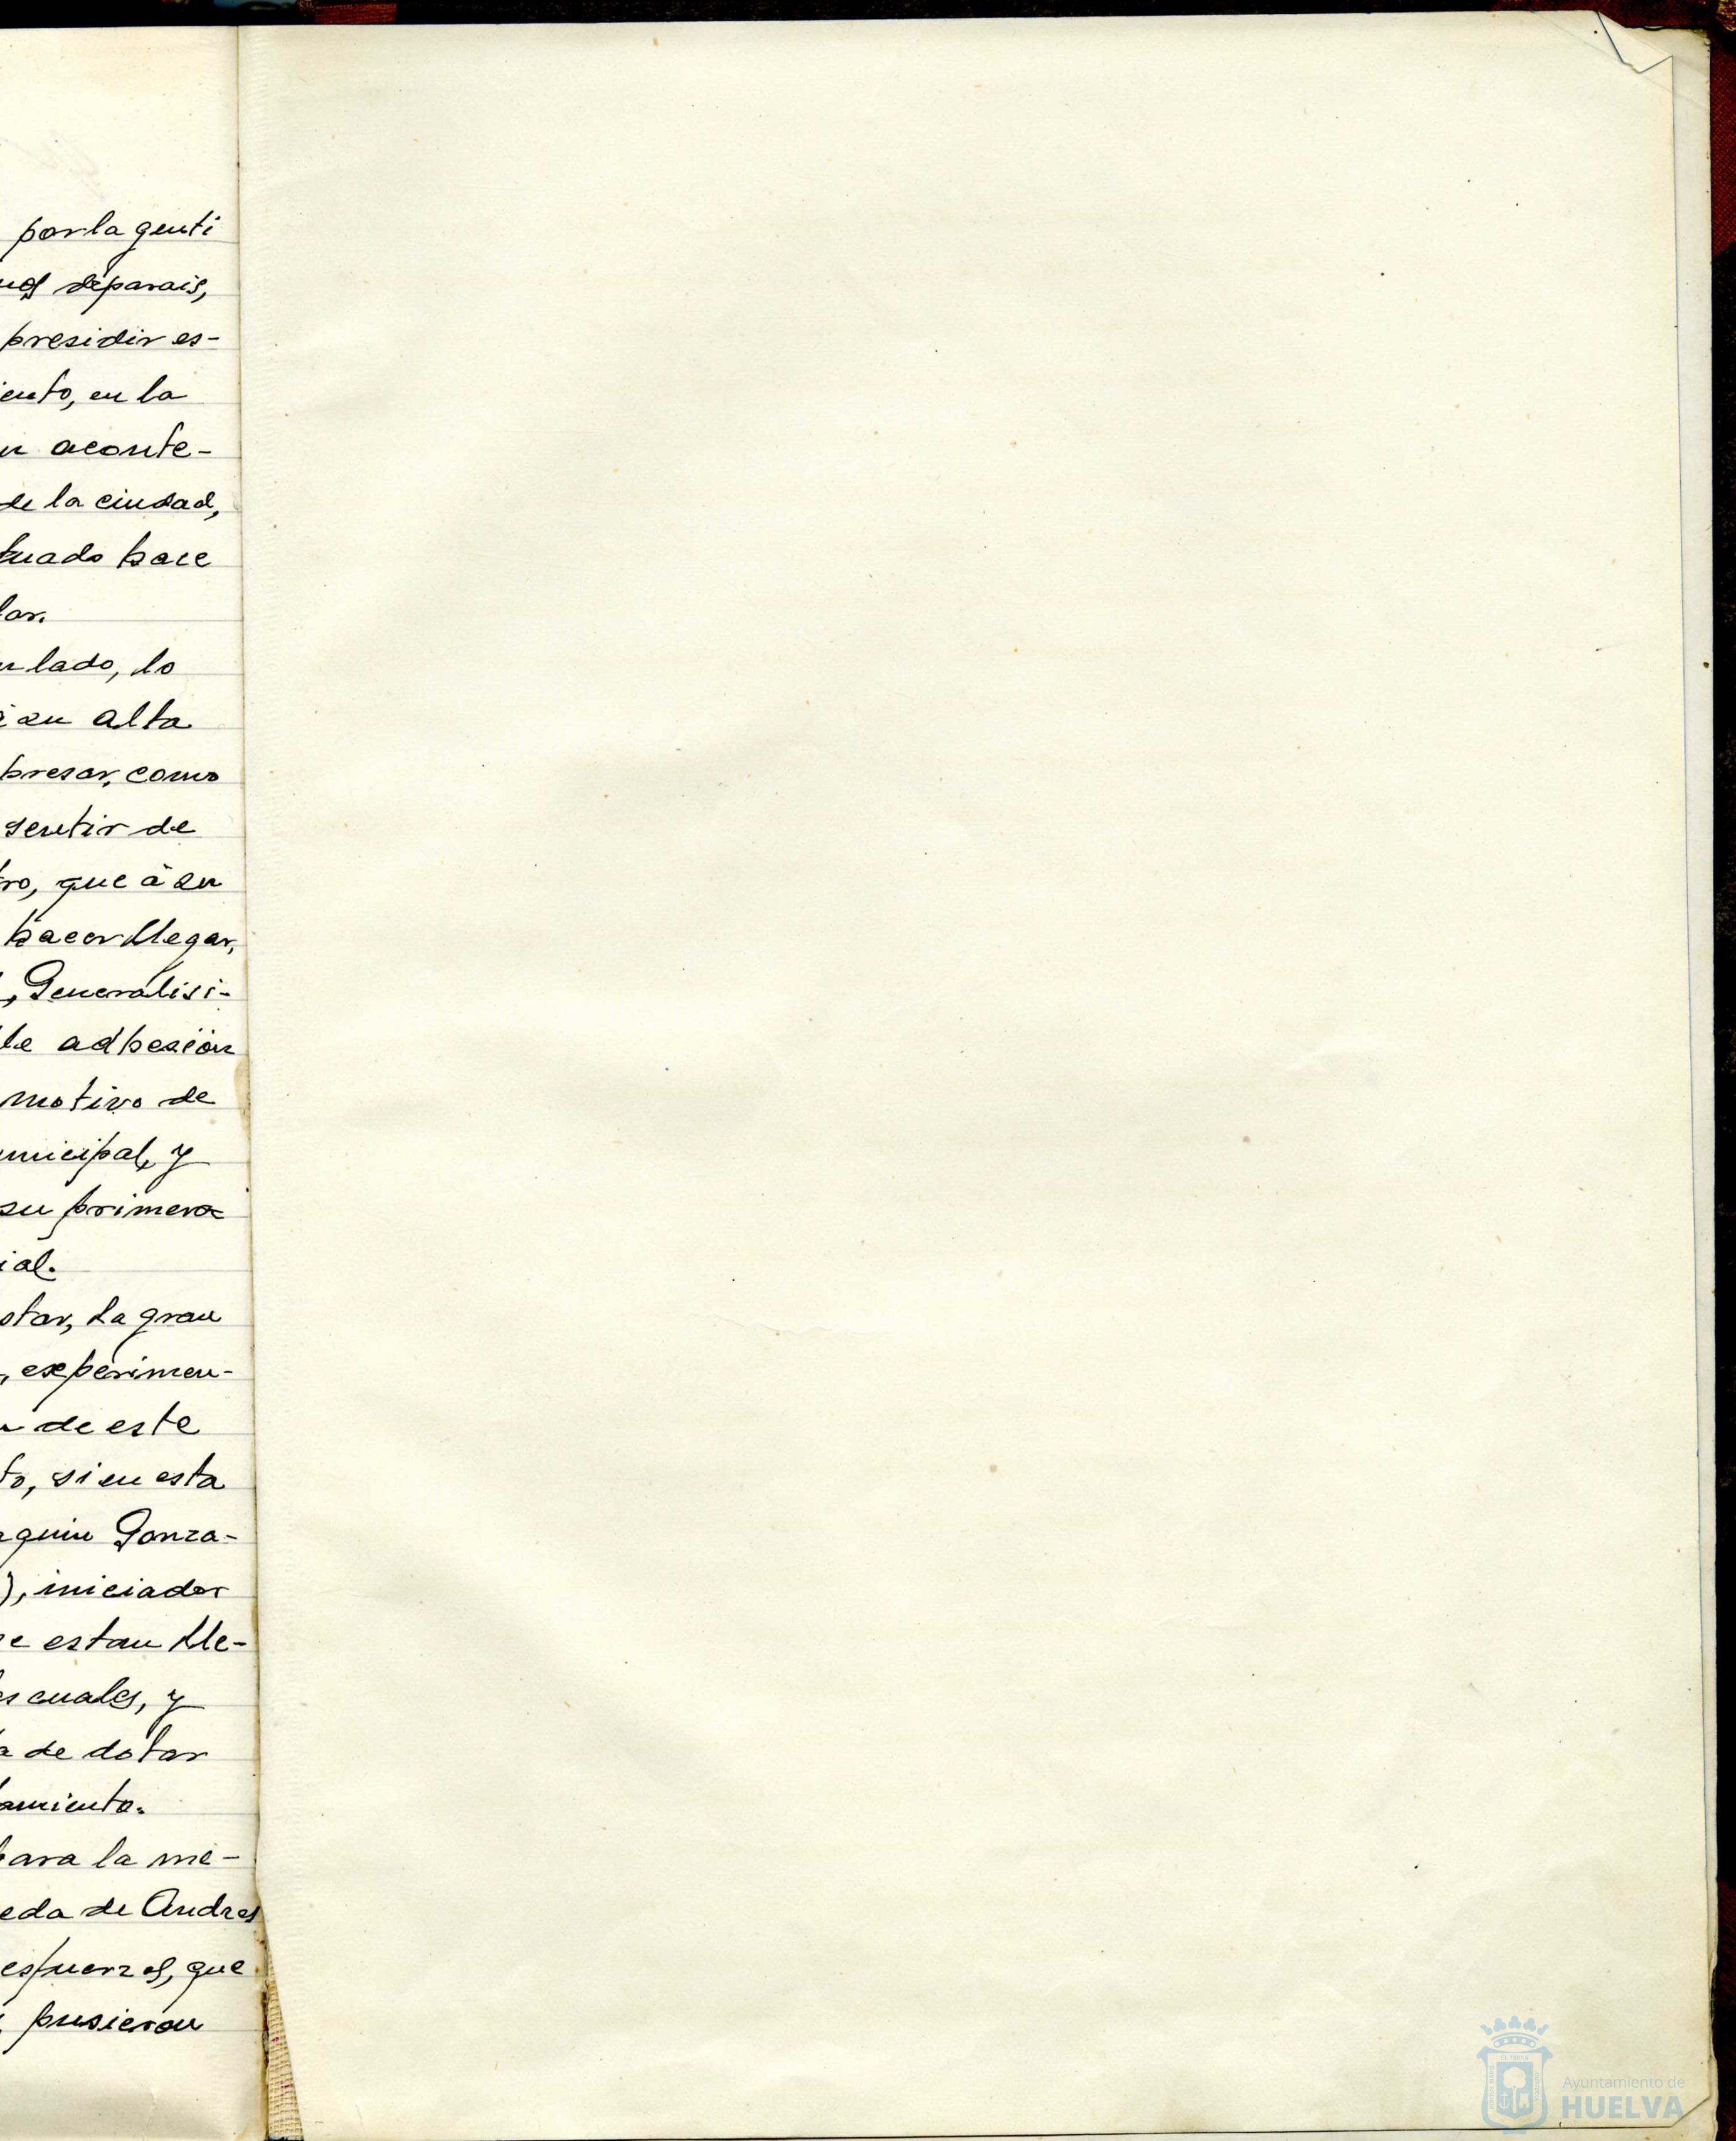 por la genti
nos deparais,
presidir es-
iento, en la
n aconte-
de la ciudad,
tuado hace
lar.
n lado, lo
i su alta
presar, como
sentir de
ro, que á su
hacer llegar,
, Generalisi-
le adhesión
motivo de
unicipal, y
su primera
ial.
star, la gran
, experimen-
n de este
to, si en esta
aquin Gonza-
), iniciador
e estan lle-
s cuales, y
a de dotar
amiento.
para la me-
eda de Andres
esfuerzos, que
, pusieron
Ayuntamiento de
HUELVA